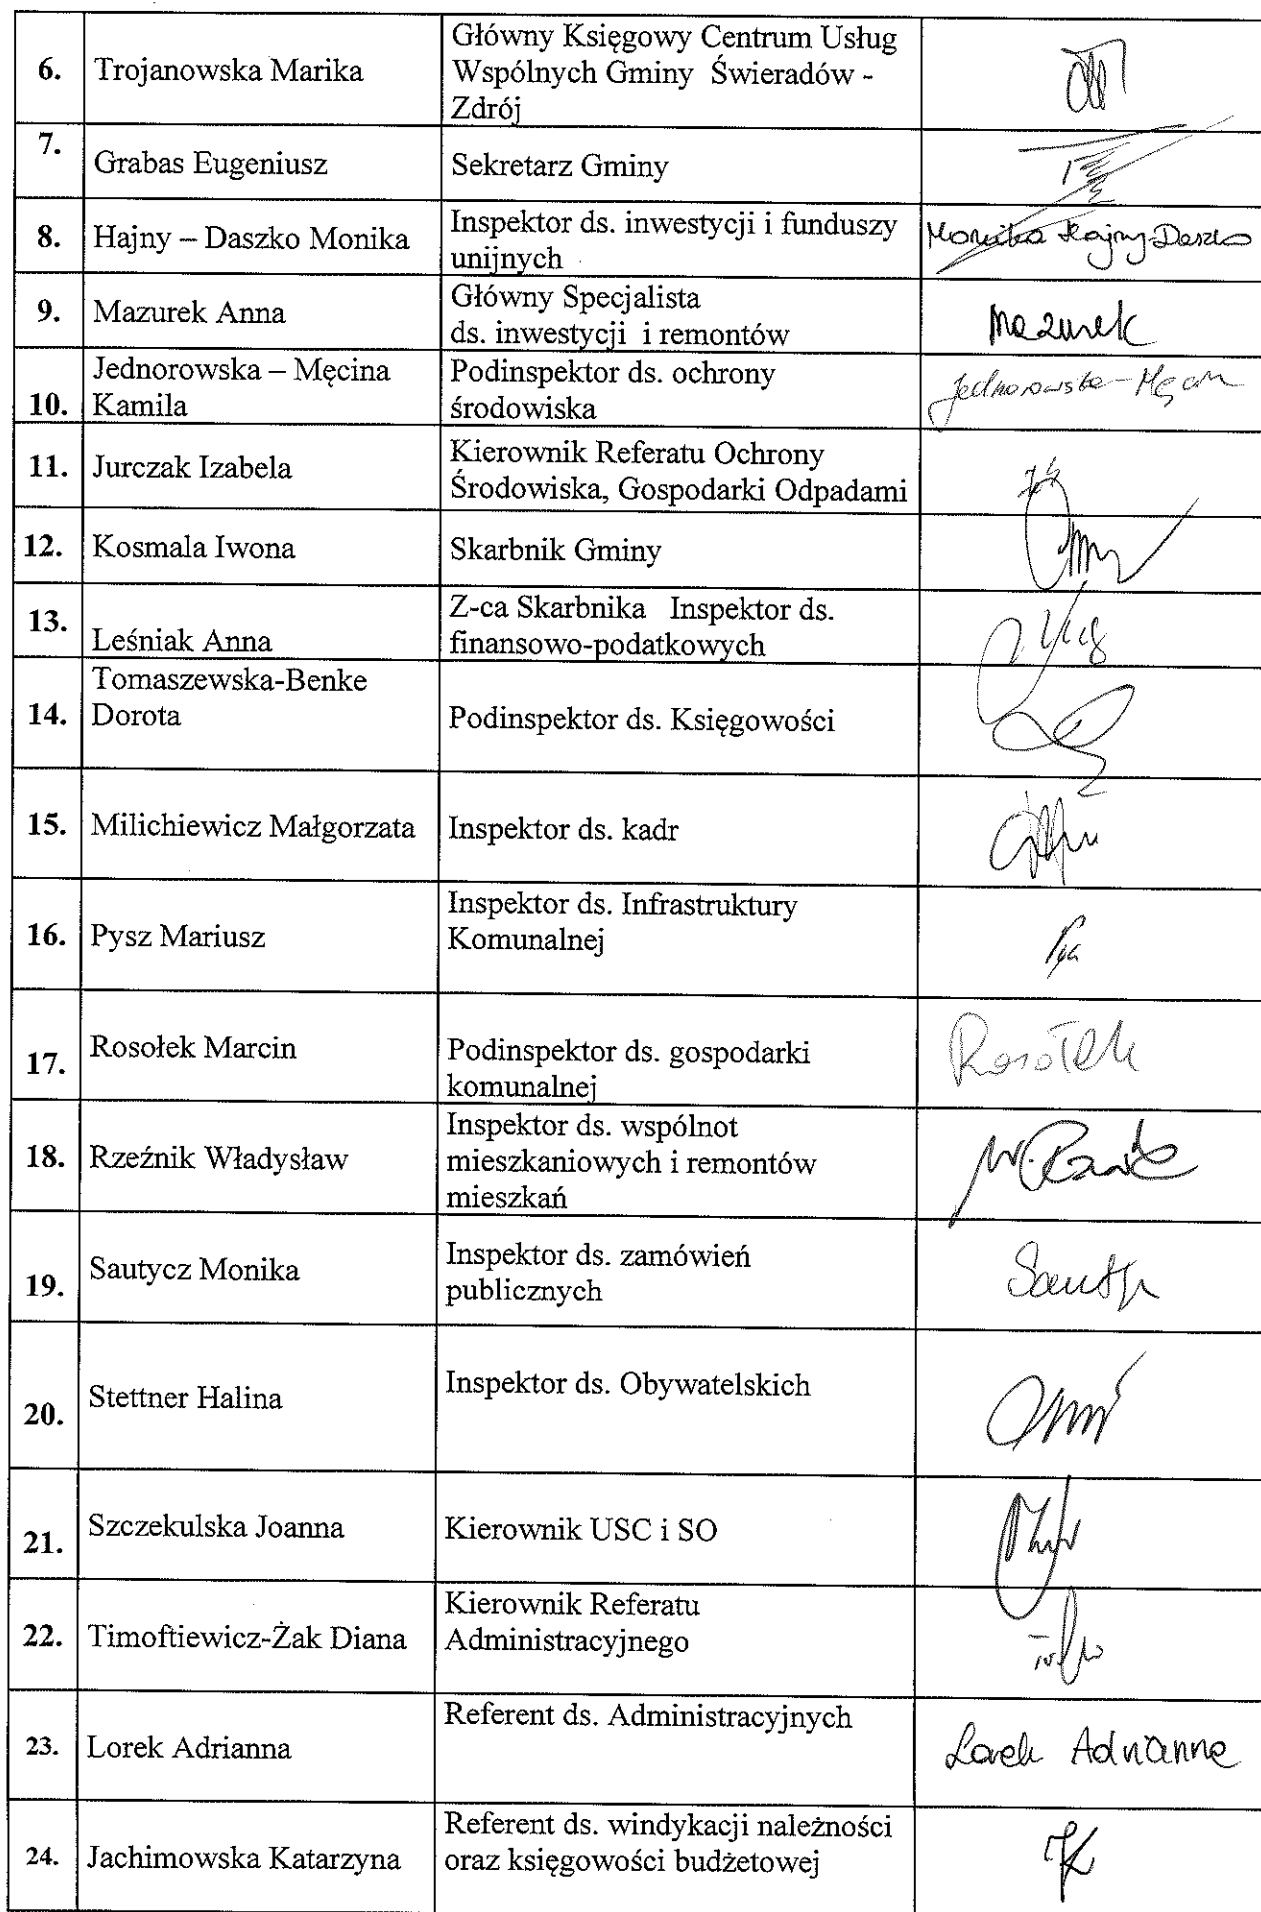 6. Trojanowska Marika
Główny Księgowy Centrum Usług
Wspólnych Gminy Świeradów -
Zdrój
7. Grabas Eugeniusz
Sekretarz Gminy
8. Hajny – Daszko Monika
Inspektor ds. inwestycji i funduszy
unijnych
Monika Hajny-Daszko
9. Mazurek Anna
Główny Specjalista
ds. inwestycji i remontów
Mazurek
10. Jednorowska – Męcina
Kamila
Podinspektor ds. ochrony
środowiska
Jednorowska-
11. Jurczak Izabela
Kierownik Referatu Ochrony
Środowiska, Gospodarki Odpadami
12. Kosmala Iwona
Skarbnik Gminy
13. Leśniak Anna
Z-ca Skarbnika Inspektor ds.
finansowo-podatkowych
14. Tomaszewska-Benke
Dorota
Podinspektor ds. Księgowości
15. Milichiewicz Małgorzata
Inspektor ds. kadr
16. Pysz Mariusz
Inspektor ds. Infrastruktury
Komunalnej
17. Rosołek Marcin
Podinspektor ds. gospodarki
komunalnej
Rosołek
18. Rzeźnik Władysław
Inspektor ds. wspólnot
mieszkaniowych i remontów
mieszkań
19. Sautycz Monika
Inspektor ds. zamówień
publicznych
20. Stettner Halina
Inspektor ds. Obywatelskich
21. Szczekulska Joanna
Kierownik USC i SO
22. Timoftiewicz-Żak Diana
Kierownik Referatu
Administracyjnego
23. Lorek Adrianna
Referent ds. Administracyjnych
Lorek Adrianna
24. Jachimowska Katarzyna
Referent ds. windykacji należności
oraz księgowości budżetowej